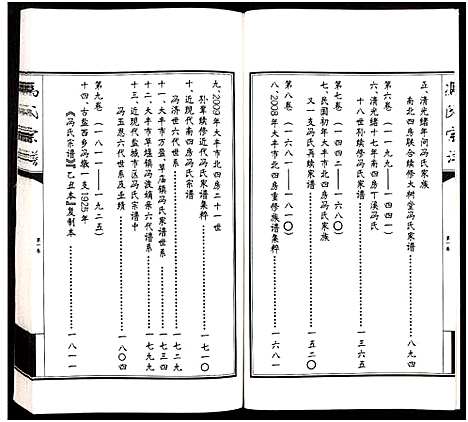 五、清光绪年间冯氏家族
南北四房联合续修大树堂冯氏家谱……八九四
第六卷（一一九九——一四四一）
六、清光绪十七年南四房丁溪冯氏
十八世孙续修冯氏家谱……一三六五
第七卷（一四四二——一六八〇）
七、民国初年大丰市北四房冯氏家族
又一支冯氏再续家谱……一五二〇
第八卷（一六八一——一八一〇）
八、2008年大丰市北四房重修族谱集粹……一六八一
九、2009年大丰市北四房二十一世
孙辈续修近代冯氏家谱集粹……一七一〇
十、近现代南四房冯氏宗谱
冯济世六代世系……一七二九
十一、大丰市万盈、草庙镇冯氏家谱世系……一七三四
十二、大丰市草堰镇冯波娟宗六谱系……一七九九
十三、近现代盐城市区冯氏宗谱中
冯玉恩六代世系及业绩……一八〇四
第九卷（一八一一——一九二五）
十四、古盐西乡冯墩一支1925年
《冯氏宗谱》【乙丑本】复制本……一八一一
冯氏宗谱
第一卷
第一卷